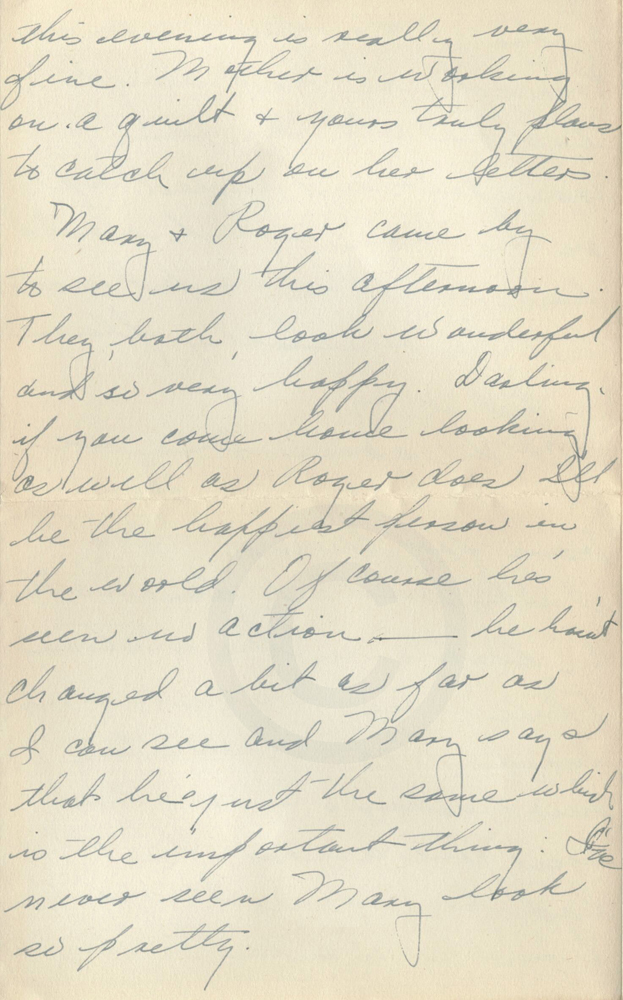 this evening is really very
fine. Mother is working
on a quilt & yours truly plans
to catch up on her letters.
Mary & Roger came by
to see us this afternoon.
They both look wonderful
and so very happy. Darling,
if you come home looking
as well as Roger does I'll
be the happiest person in
the world. Of course he's
seen no action — he hasn't
changed a bit as far as
I can see and Mary says
that he's just the same which
is the important thing. I've
never seen Mary look
so pretty.